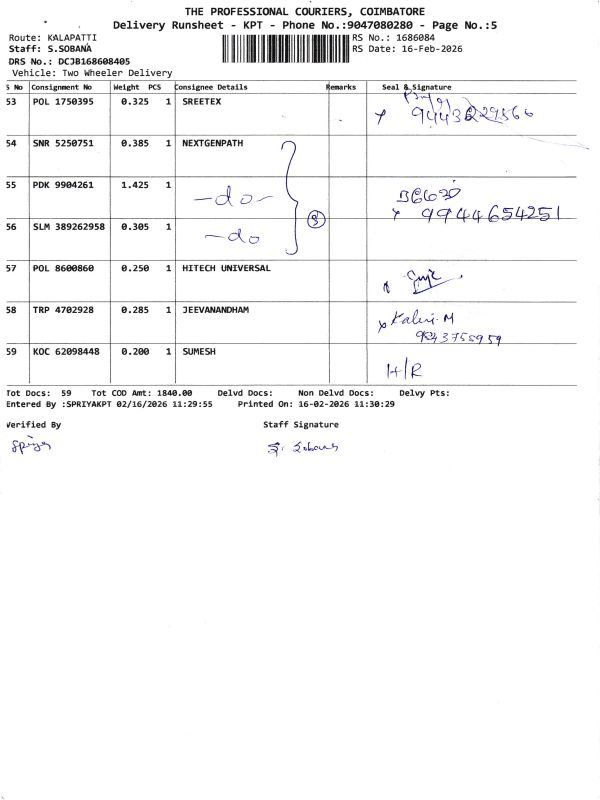 THE PROFESSIONAL COURIERS, COIMBATORE
Delivery Runsheet - KPT - Phone No.:9047080280 - Page No.:5
Route: KALAPATTI RS No.: 1686084
Staff: S.SOBANA RS Date: 16-Feb-2026
DRS No.: DCJB168608405
Vehicle: Two Wheeler Delivery
S No Consignment No Weight PCS Consignee Details Remarks Seal & Signature
53 POL 1750395 0.325 1 SREETEX
54 SNR 5250751 0.385 1 NEXTGENPATH
55 PDK 9904261 1.425 1 -do-
9944654251
56 SLM 389262958 0.305 1 -do
57 POL 8600860 0.250 1 HITECH UNIVERSAL
58 TRP 4702928 0.285 1 JEEVANANDHAM
59 KOC 62098448 0.200 1 SUMESH H/R
Tot Docs: 59 Tot COD Amt: 1840.00 Delvd Docs: Non Delvd Docs: Delvy Pts:
Entered By :SPRIYAKPT 02/16/2026 11:29:55 Printed On: 16-02-2026 11:30:29
Verified By Staff Signature